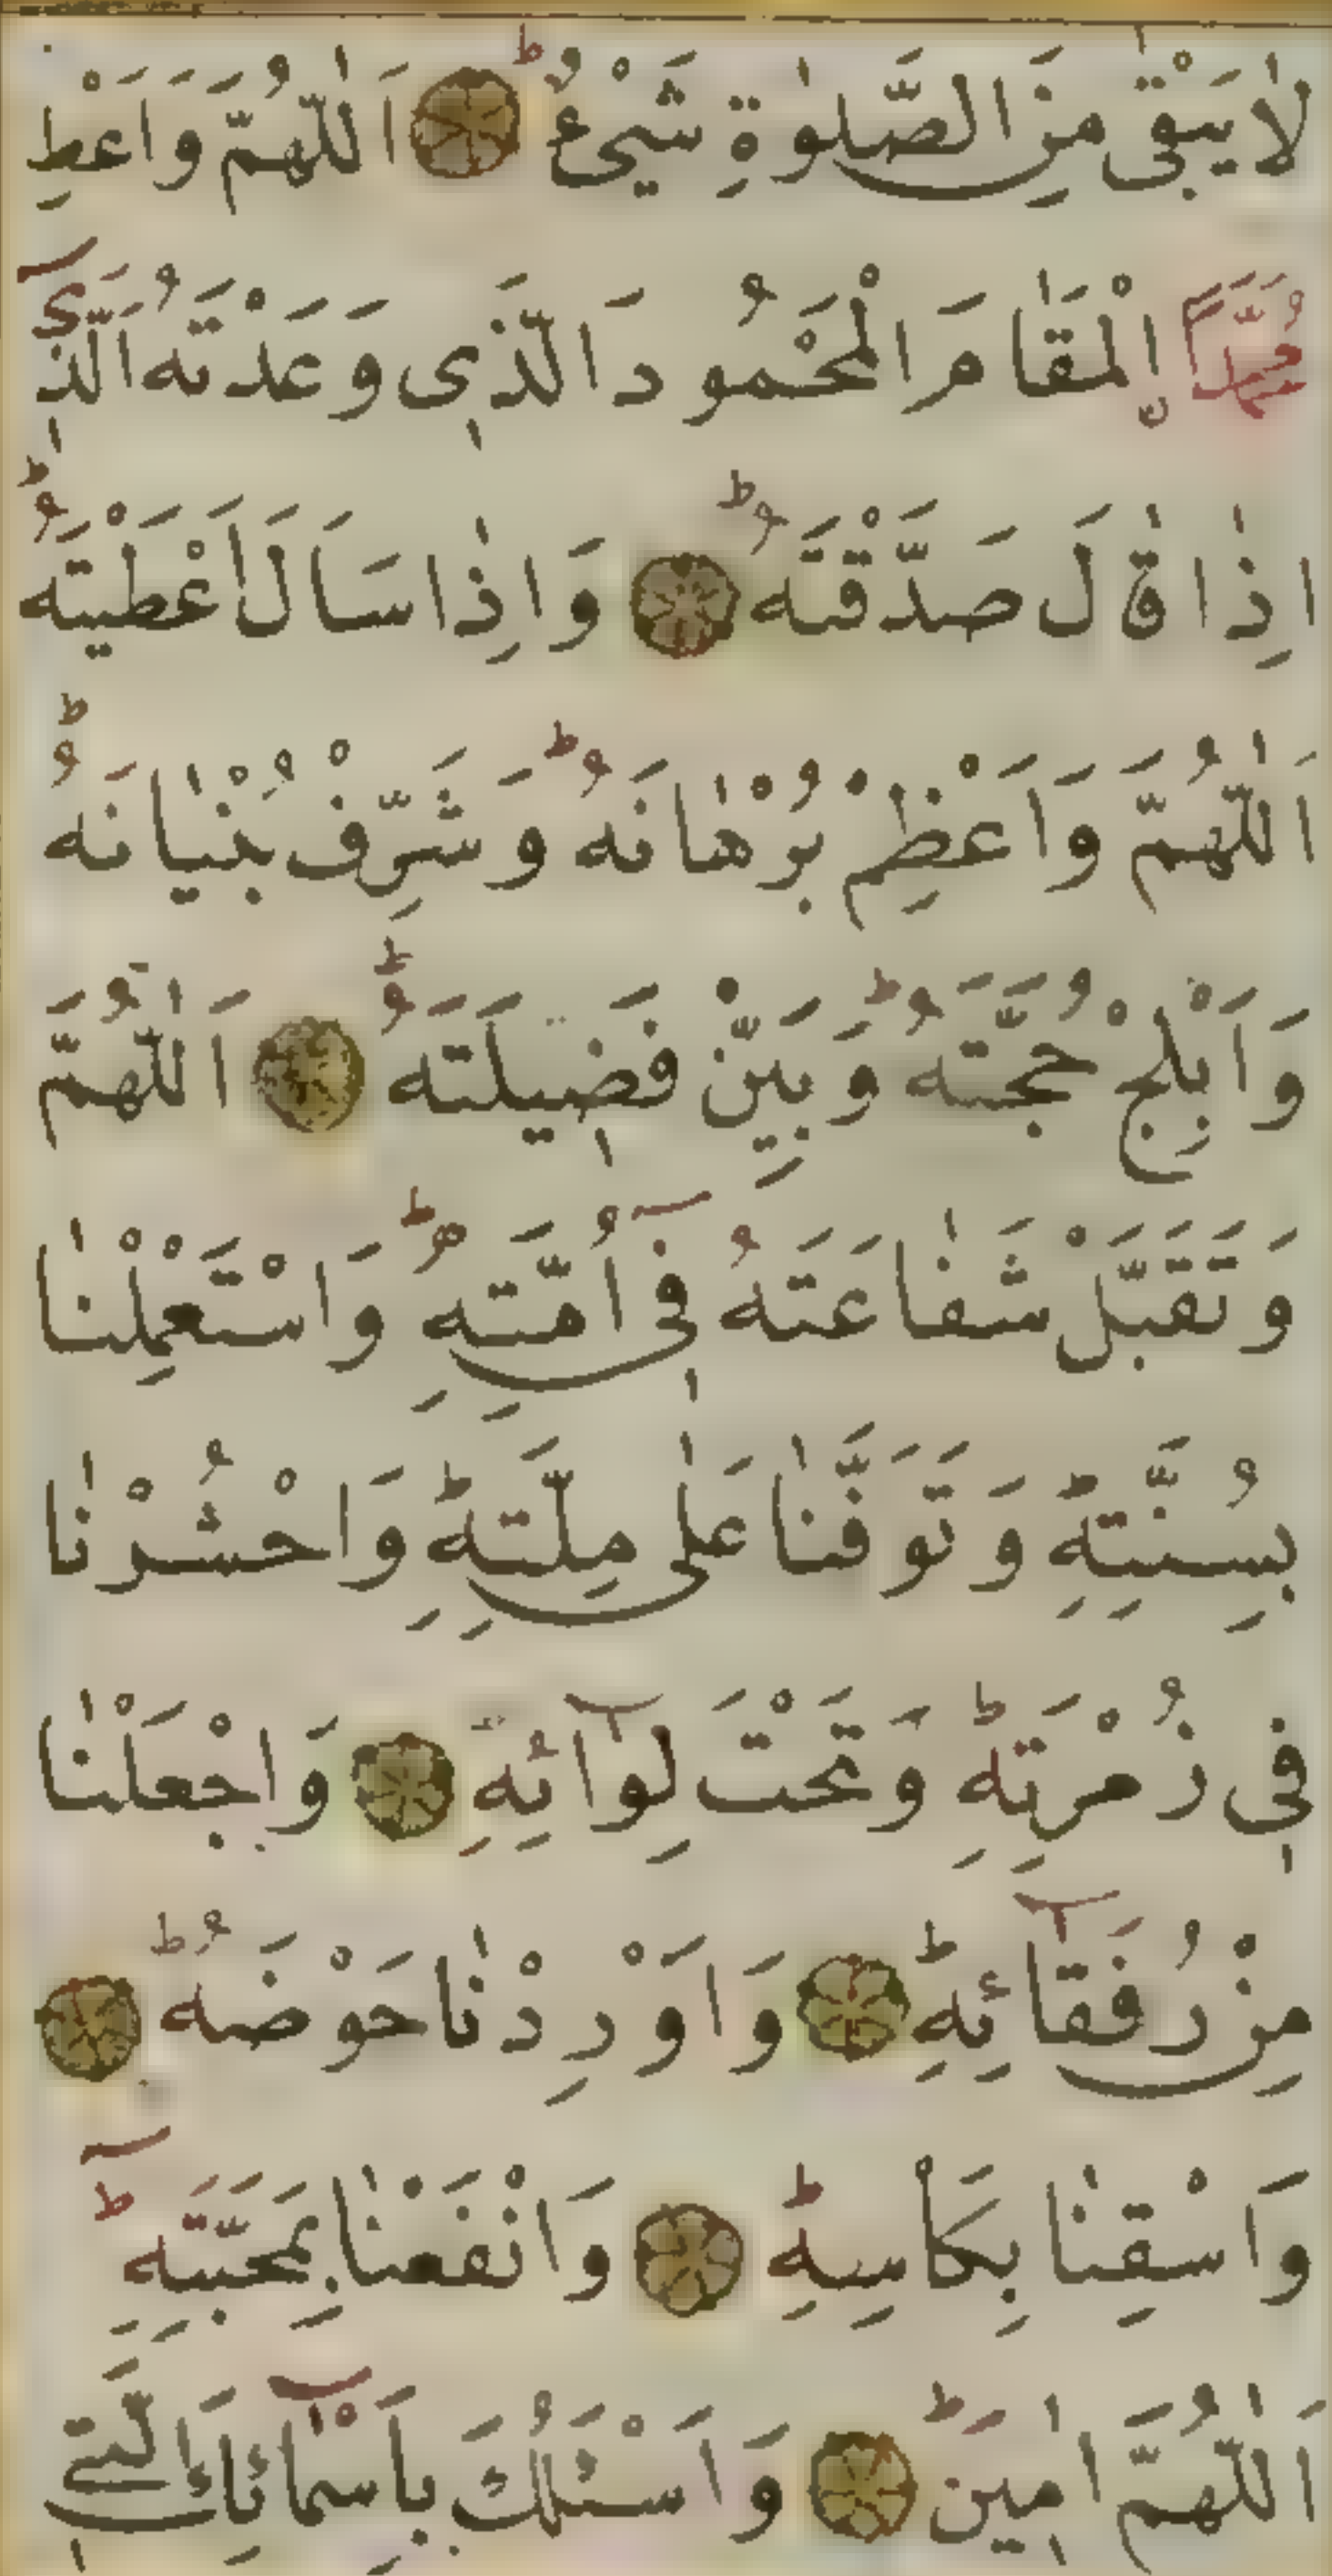 لَا يَبْقٰى مِنَ الصَّلٰوةِ شَيْءٌ ط اَللّٰهُمَّ وَاَعْطِ
مُحَمَّدًا اِلْمَقَامَ الْمَحْمُودَ الَّذِي وَعَدْتَهُ الَّذِي
اِذَا قَالَ صَدَّقْتَهُ ط وَاِذَا سَاَلَ اَعْطَيْتَهُ ط
اَللّٰهُمَّ وَاَعْظِمْ بُرْهَانَهُ ط وَشَرِّفْ بُنْيَانَهُ ط
وَاَبْلِجْ حُجَّتَهُ ط وَبَيِّنْ فَضِيلَتَهُ ط اَللّٰهُمَّ
وَتَقَبَّلْ شَفَاعَتَهُ فِي اُمَّتِهِ ط وَاسْتَعْمِلْنَا
بِسُنَّتِهِ ط وَتَوَفَّنَا عَلٰى مِلَّتِهِ ط وَاحْشُرْنَا
فِي زُمْرَتِهِ ط وَتَحْتَ لِوَآئِهِ وَاجْعَلْنَا
مِنْ رُفَقَآئِهِ ط وَاَوْرِدْنَا حَوْضَهُ ط
وَاسْقِنَا بِكَأْسِهِ ط وَانْفَعْنَا بِمَحَبَّتِهِ ط
اَللّٰهُمَّ اٰمِينَ ط وَاَسْئَلُكَ بِاَسْمَآئِكَ الَّتِي